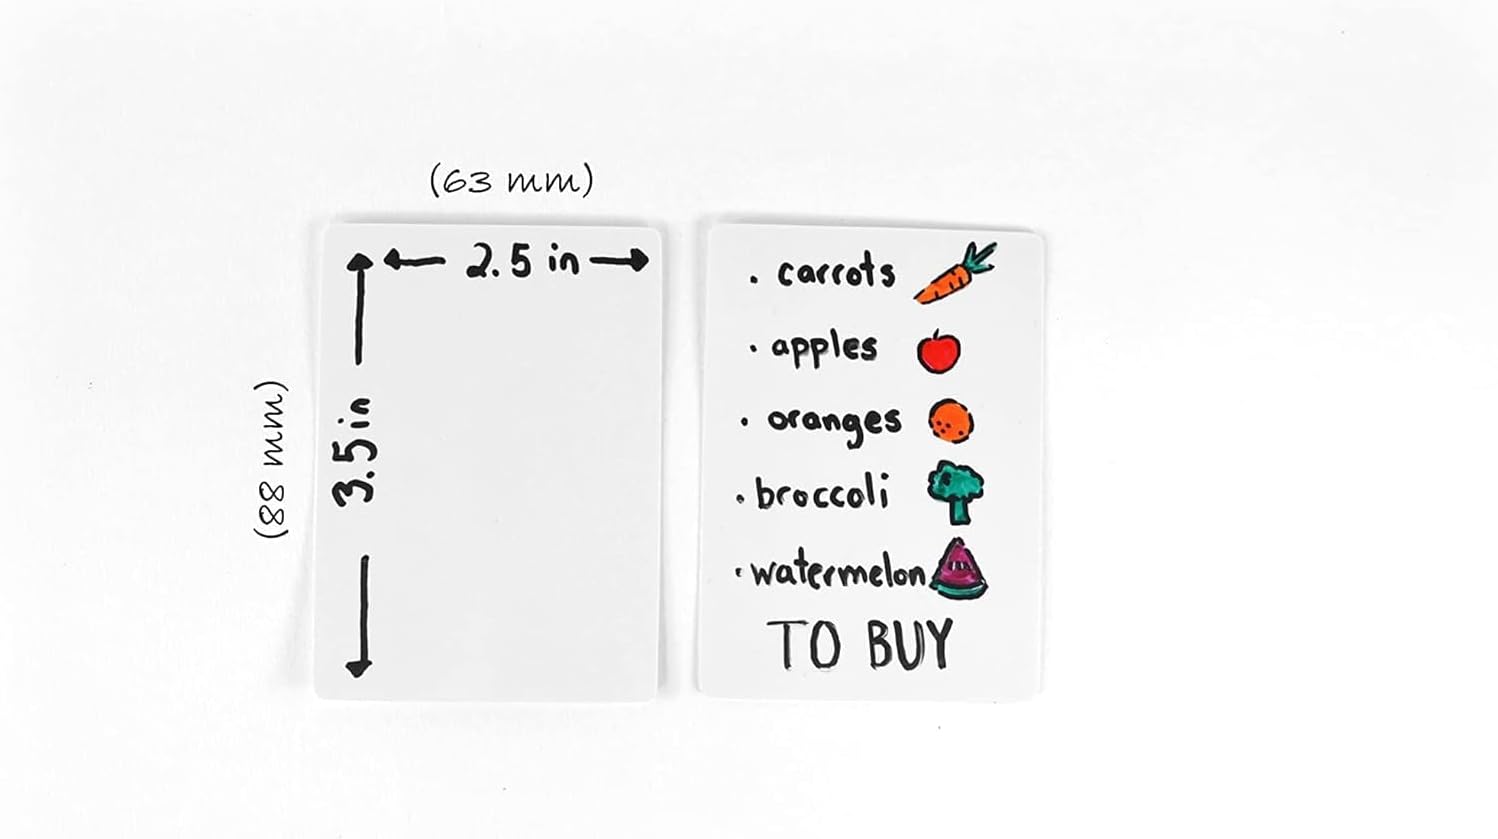 (63 mm)
2.5 in
3.5 in
(88 mm)
. carrots
. apples
. oranges
. broccoli
. watermelon
TO BUY